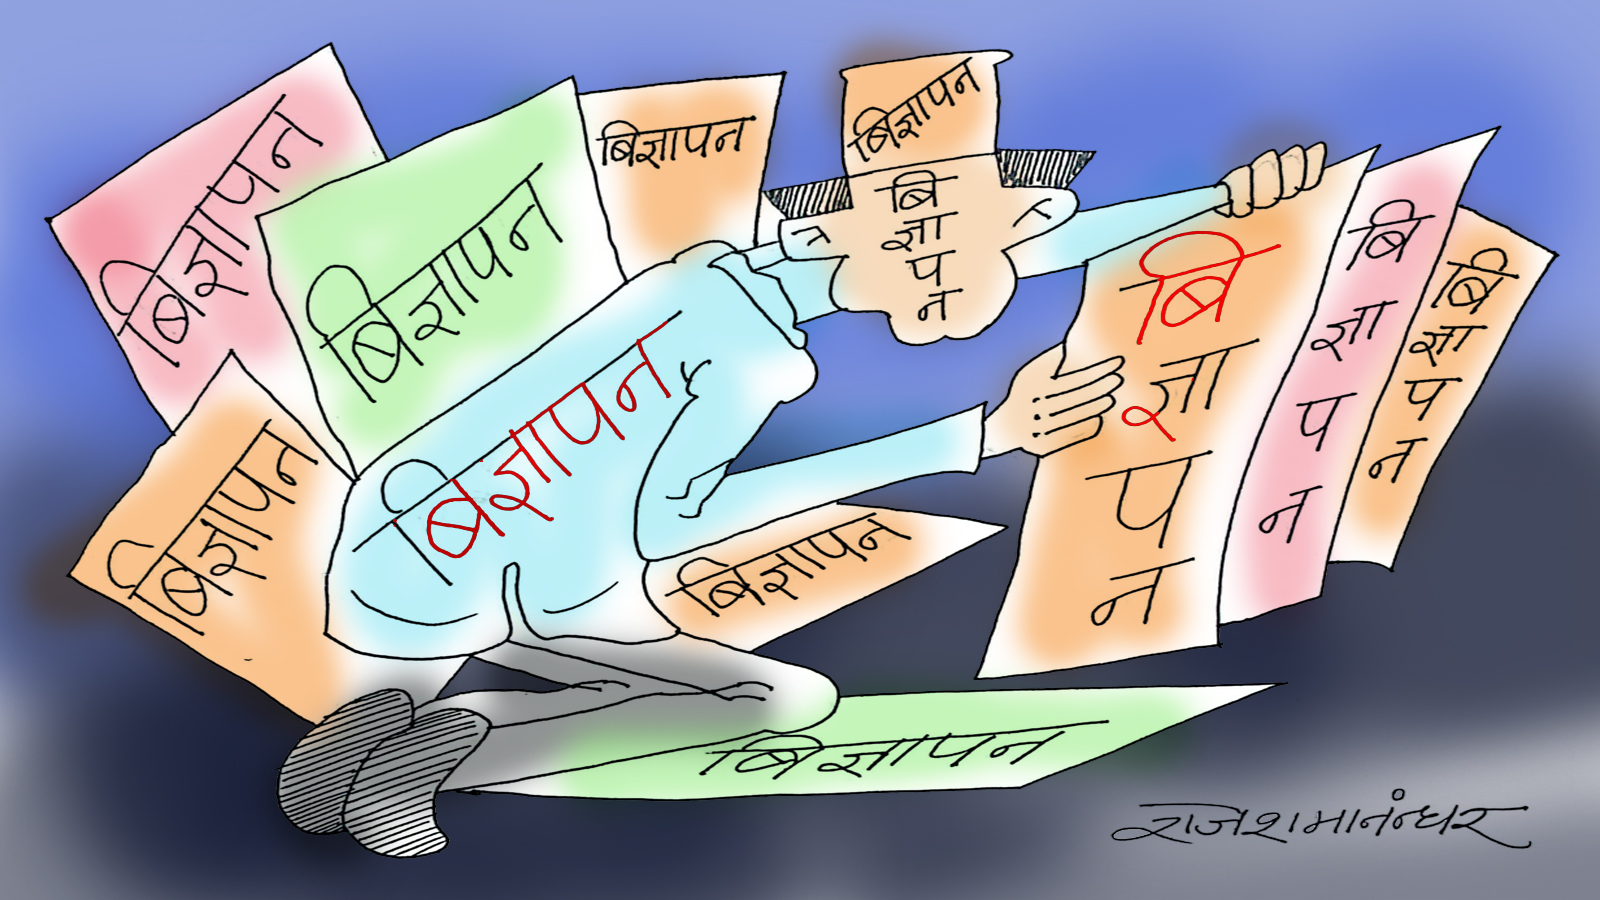 बिज्ञापन
बिज्ञापन
बिज्ञापन
बिज्ञापन
बिज्ञापन
बिज्ञापन
बिज्ञापन
बिज्ञापन
बिज्ञापन
बिज्ञापन
बिज्ञापन
बिज्ञापन
बिज्ञापन
राजेशमानंन्धर